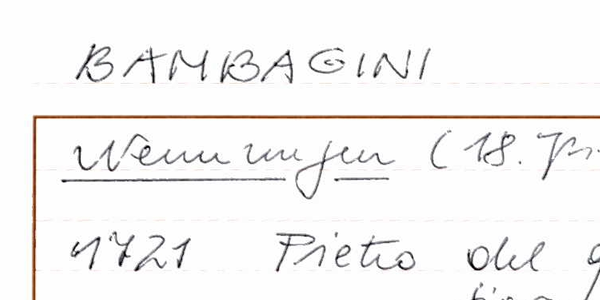 BAMBAGINI
Nennungen (18.
1721 Pietro del